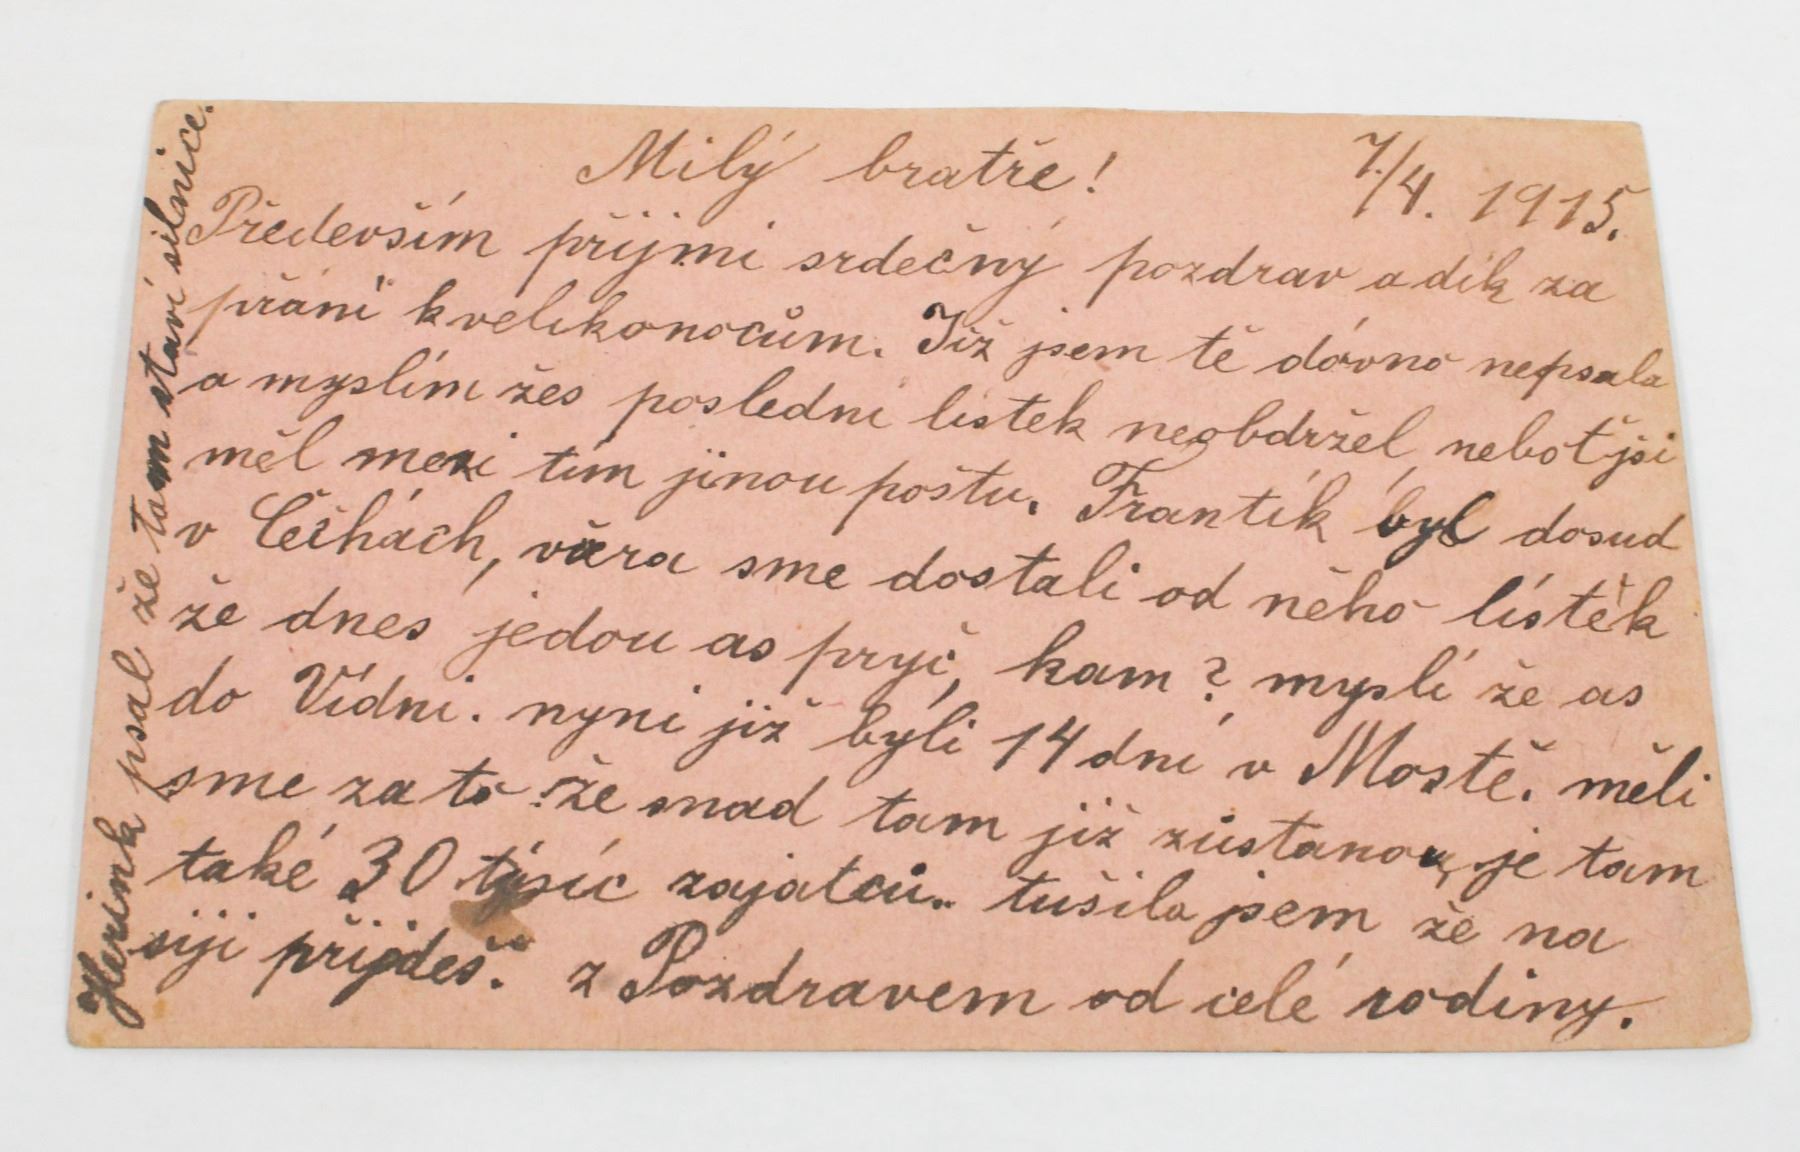 7./4. 1915.
Milý bratře!
Především přijmi srdečný pozdrav a dík za
přání k velikonocům. Již jsem tě dávno nepsala
a myslím žes poslední lístek neobdržel neboť jsi
měl mezi tím jinou poštu. Frantík byl dosud
v Čechách, včera sme dostali od něho lístek
že dnes jedou as pryč, kam? myslí že as
do Vídni. nyni již byli 14 dní v Mostě. měli
sme za to že snad tam již zůstanou, je tam
také 30 tisíc zajatců. tušila jsem že na
přijdeš. z Pozdravem od celé rodiny.
psal že tam staví silnice.